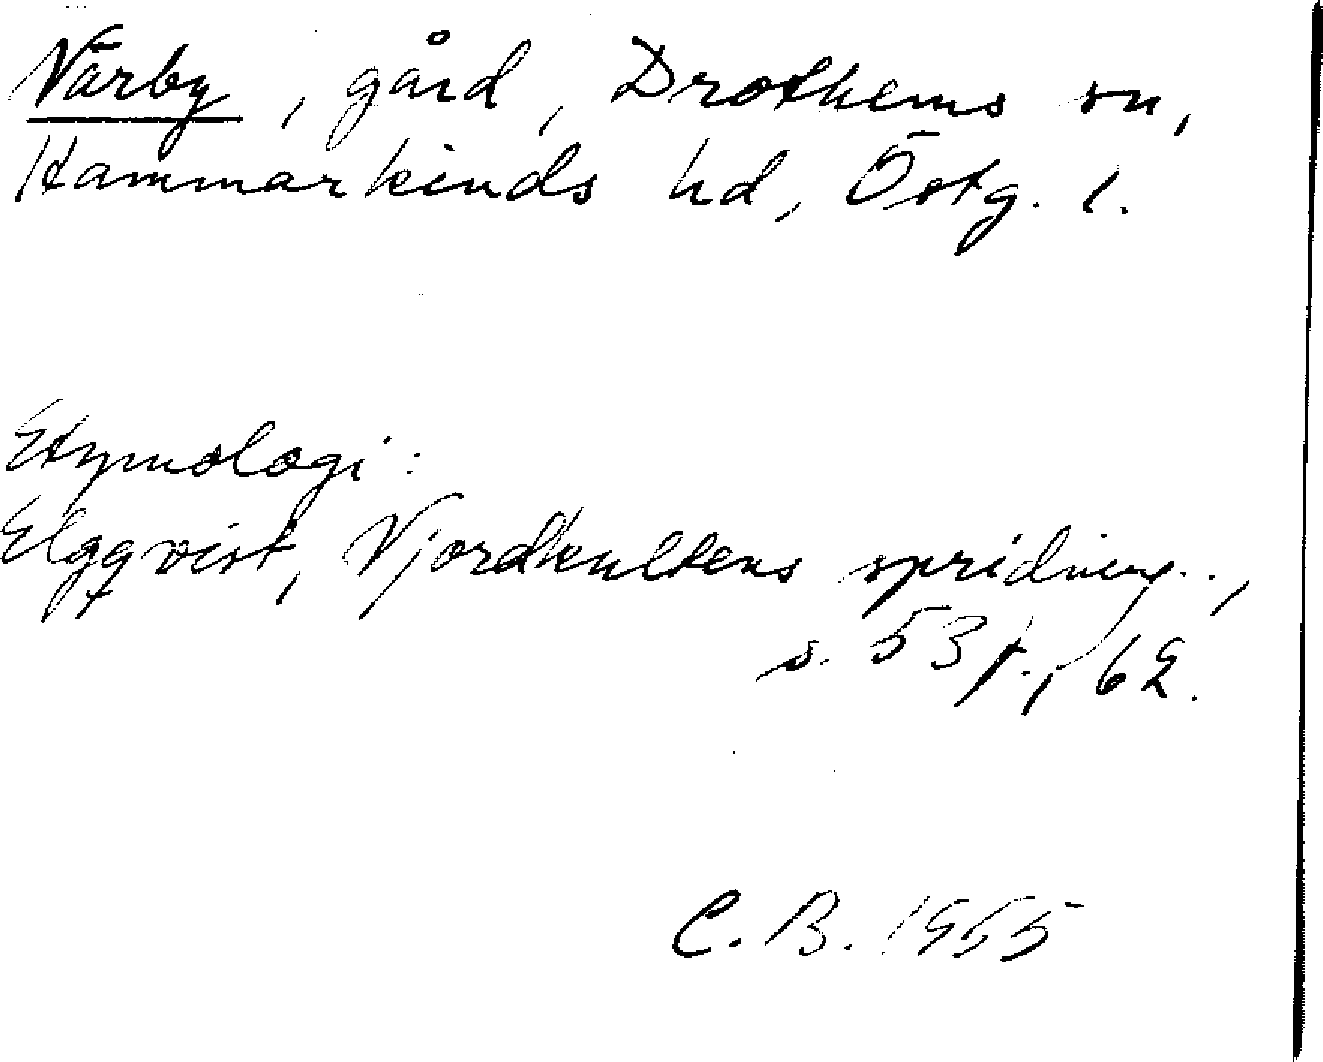 Närby, gård, Drothems sn,
Hammarkinds hd, Östg. l.
Etymologi:
Elgqvist, Njordkultens spridning..,
s. 53 f., 62.
C. B. 1955